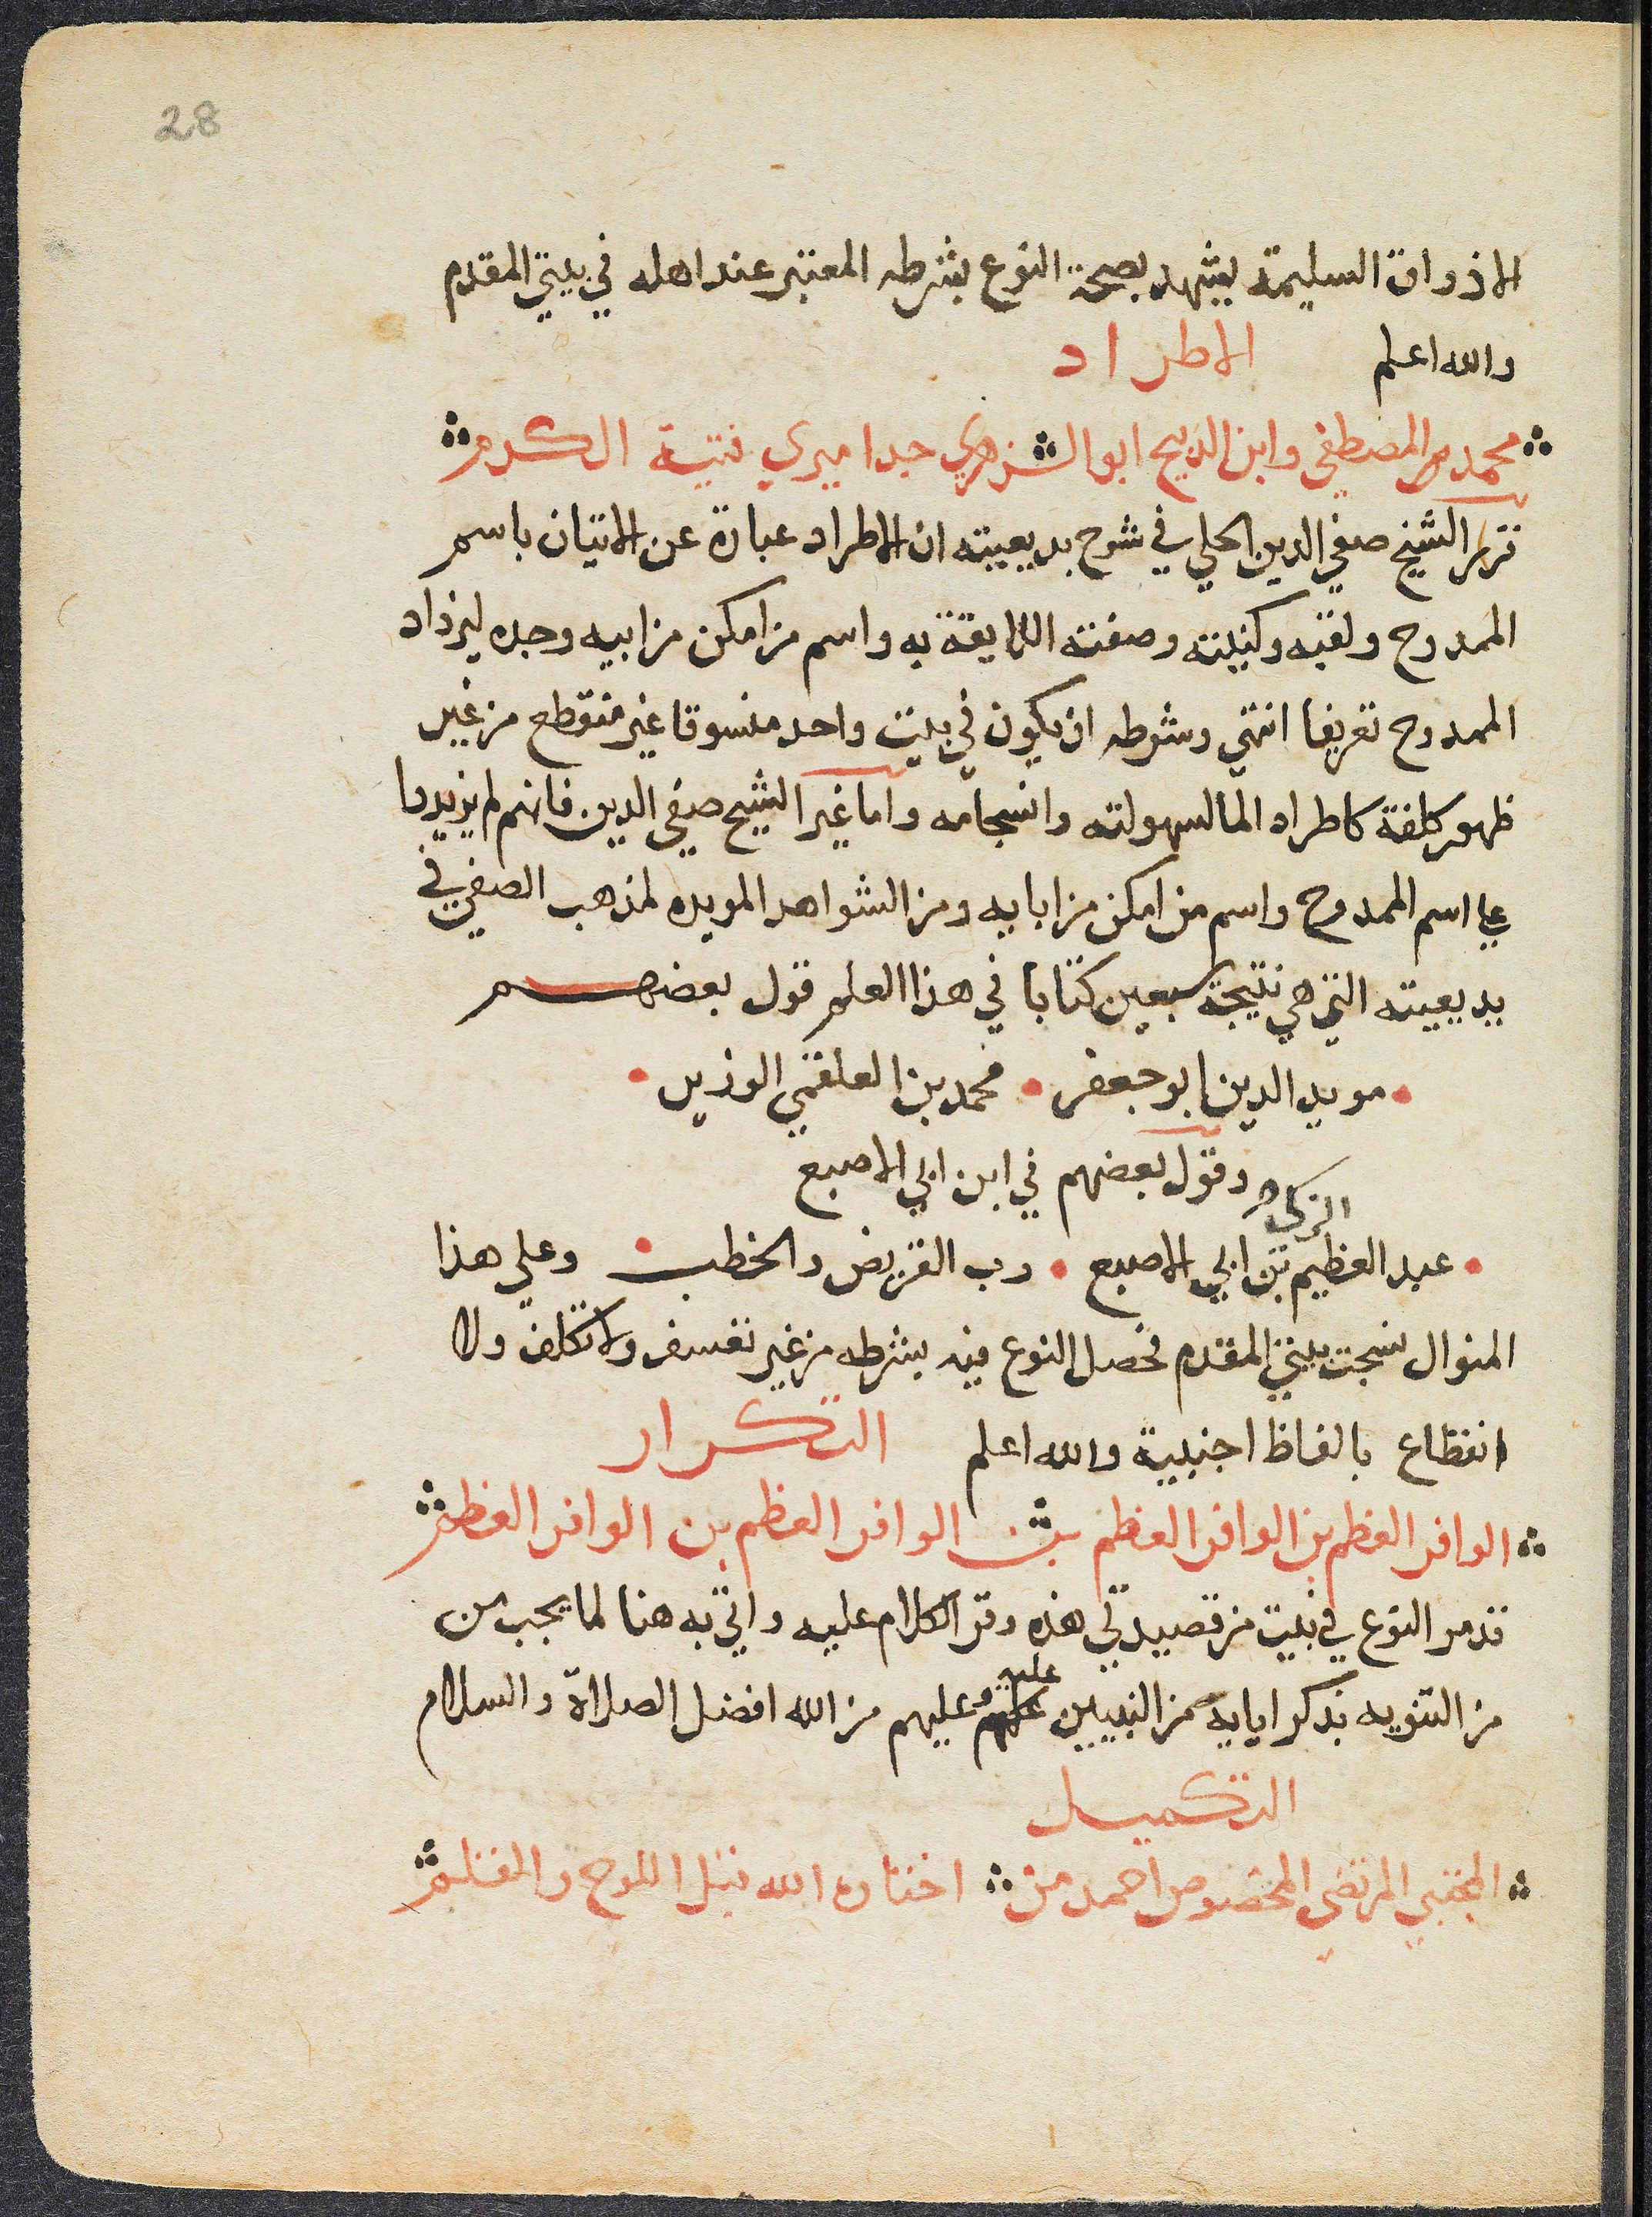 28
الاذواق السليمة يشهد بصحة النوع بشرطه المعتبر عند اهله في بيتي المقدم
والله اعلم الاطراد
محمد المصطفى وابن الذبيح ابو الزهري جدا ميري فتية الكرم
قرر الشيخ صفي الدين الحلي في شرح بديعيته ان الاطراد عبارة عن الاتيان باسم
الممدوح ولقبه وكنيته وصفته اللايقة به واسم من امكن من ابيه وجده ليزداد
الممدوح تعريفا انتهى وشرطه ان يكون في بيت واحد منسوقا غير منقطع من غير
ظهور كلفة كاطراد الما لسهولته وانسجامه واما غير الشيخ صفي الدين فانهم لم يزيدوا
على اسم الممدوح واسم من امكن من ابايه ومن الشواهد المويده لمذهب الصفي في
بديعيته التي هي نتيجة سبعين كتابا في هذا العلم قول بعضهم
مويد الدين ابو جعفر محمد بن العلقمي الوزير
وقول بعضهم في ابن ابي الاصبع
الزكي
عبد العظيم بن ابي الاصبع رب القريض والخطب وعلى هذا
المنوال نسجت بيتي المقدم فحصل النوع فيه بشرطه من غير تعسف ولا تكلف ولا
انقطاع بالفاظ اجنبية والله اعلم التكرار
الوافر العظم بن الوافر العظم بن الوافر العظم بن الوافر العظم
تقدم النوع في بيت من قصيدتي هذه ومر الكلام عليه واتي به هنا لما يجب من
من التنويه بذكر ابايه من النبيين عليه وعليهم من الله افضل الصلاة والسلام
التكميل
المجتبى المرتضى المخصوص احمد من اختاره الله قبل اللوح والقلم